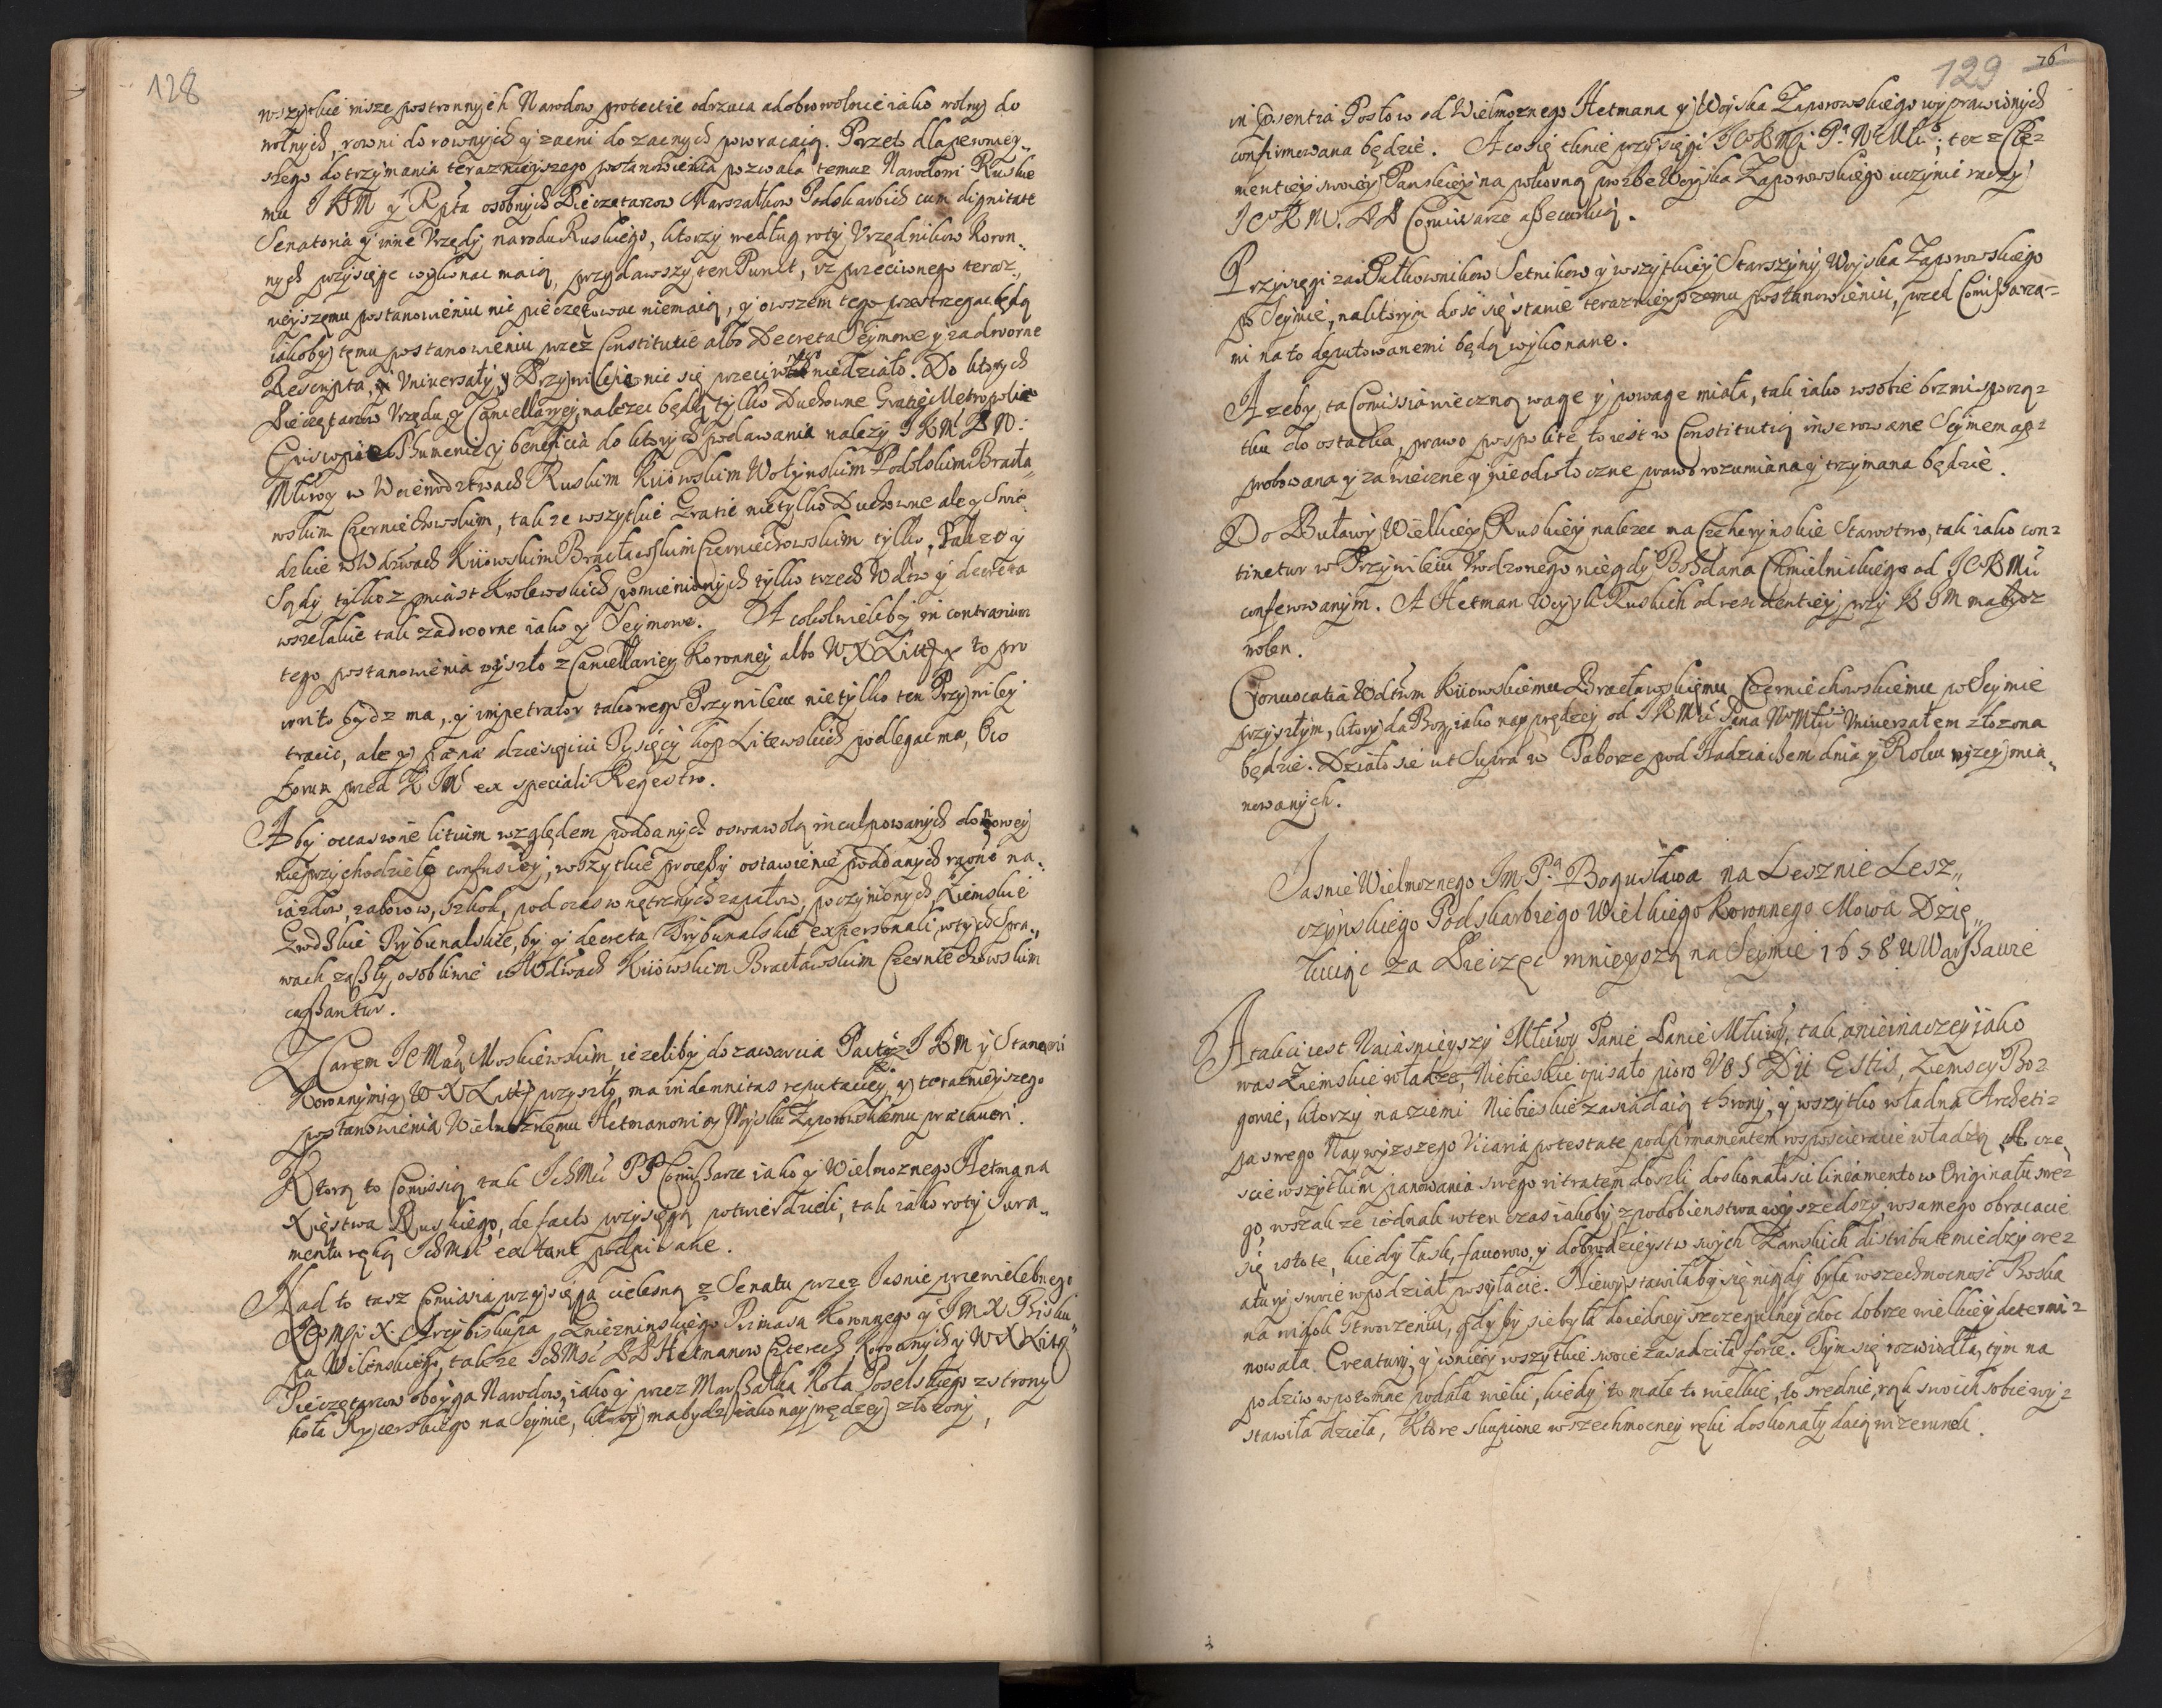 128
wszytkie insze postronnych Narodow protectie odrzuca a dobrowolnie iako wolny do
wolnych, rowni do rownych y zacni do zacnych powracaią. Przeto dla pewniey„
szego dotrzymania teraznieyszego postanowienia pozwala temuz Narodowi Ruskie
mu J K M y Rpta osobnych Pieczętarzow Marszałkow Podskarbich cum dignitate
Senatoria y inne Vrzędy narodu Ruskiego, ktorzy według roty Vrzędnikow Koron„
nych przysięgę wykonac maią, przydawszy ten Punct, iz przeciwnego teraz„
nieyszemu postanowieniu nic pieczętowac niemaią, y owszem tego przestrzegac będą
iakoby temu postanowieniu przez Constitutie albo Decreta Seymowe y zadworne
Rescripta, Vniuersały, y Przywileje nic się przeciwnego niedziało. Do ktorych
Pieczętarzow Vrzędu y Cancellaryey nalezec będą tylko Duchowne Gratie Metropolie
Episcopie Ihumenie y beneficia do ktorych podawania nalezy J K M P N:
Młłwy w Woiewodztwach Ruskim Kiiowskim Wołynskim Podolskim Bracła„
wskim Czerniechowskim, takze wszytkie Gratie nietylko Duchowne ale y Swie„
dzkie w Wdztwach Kiiowskim Bracławskim Czerniechowskim tylko. Takze y
Sądy tylko z miast Krolewskich pomienionych tylko trzech Wdztw y decreta
wszelakie tak zadworne iako y Seymowe. A cokolwiekby in contrarium
tego postanowienia wyszło z Cancellariey Koronney albo W X Litt to pro
irrito bydz ma, y impetrator takowego Przywileiu nietylko ten Przywiley
tracic, ale y paena dziesięciu Tysięcy kop Litewskich podlegac ma, O co
forum przed K JM ex speciali Regestro.
Aby occasione litium względem poddanych o swawolą inculpowanych do nowey
nieprzychodziełe confusiey, wszytkie processy o stawienie poddanych racone na„
iazdow, zaborow, szkod, pod czas wnętrznych zapałow, poczynionych, Ziemskie
Grodzkie Trybunalskie, by y decreta Trybunalskie ex personali w tych Spra„
wach zaszły, osobliwie w Wdztwach Kiiowskim Bracławskim Czerniechowskim
cassantur.
Z Carem JE Mcią Moskiewskim, iezeliby do zawarcia Pactcz J K M y Stanomi
Koronnymi y W X Litt przyszło, ma indemnitas reputaciey, y teraznieyszego
postanowienia Wielmoznemu Hetmanowi y Woysku Zaporowskiemu praecaueri.
Ktorą to Comissią tak Ichmć PP Comissarze iako y Wielmoznego Hetmana
Xięstwa Ruskiego, de facto przysięgą potwierdzieli, tak iako roty Jura„
mentu ręką Ichmć extant podpisane.
Nad to tasz Comissia przysięgą cielesną z Senatu przez Jasnie przewielebnego
Jeomsci X. Arcybiskupa Gnieznienskiego Primasa Koronnego y J M X. Bisku„
pa Wilenskiego, takze Ichmść PP Hetmanow Czterech Koronnych y W X Litt
Pieczętarzow oboyga Narodow, iako y przez Marszałka Koła Poselskiego z strony
koła Rycerskiego na Seymie, ktory ma bydz iako nayprędzey złozony,
129 76
in praesentia Posłow od Wielmoznego Hetmana y Woyska Zaporowskiego wyprawionych
confirmowana będzie. A co się tknie przysięgi JeoKMsci Pa NoMłłgo, tę z Cle=
mentiey swoiey Panskiey na pokorną prozbę Woyska Zaporowskiego uczynic raczy
JeoK M. PP Comissarze assecuruią.
Przysięgi zas Pułkownikow Setnikow y wszytkiey Starszyny Woyska Zaporowskiego
po Seymie, na ktorym dosc się stanie teraznieyszemu postanowieniu, przed Comissarza=
mi na to deputowanemi będą wykonane.
A zeby ta Comissia wieczną wagę y powagę miała, tak iako w sobie brzmi s porzą=
tku do ostatka, prawo pospolite to iest w Constitutią inserowane Seymem ap=
probowana y za wieczne y nieodwłoczne prawo rozumiana y trzymana będzie.
Do Buławy Wielkiey Ruskiey nalezec ma Czeherynskie Starostwo, tak iako con=
tinetur w Przywileiu Vrodzonego niegdy Bohdana Chmielnickiego od JEKMci
conferowanym. A Hetman Woysk Ruskich od residentiey przy K JM ma bydz
wolen.
Conuocatia Wdztwm Kiiowskiemu Bracławskiemu Czerniechowskiemu po Seymie
przyszłym, ktory da Bog iako nayprędzey od J K Mci Pana NoMłło Vniuersałem złozona
będzie. Działo się ut supra w Taborze pod Hadziaczem dnia y Roku wyzey mia„
nowanych.
Jasnie Wielmoznego Jm Pa Bogusława na Lesznie Lesz„
czynskiego Podskarbiego Wielkiego Koronnego Mowa Dzię„
kuiąc za Pieczęc mnieyszą na Seymie 1658 w Warszawie
A tak ci iest Naiasnieyszy Młłwy Panie Panie Młłwy, tak a nieinaczey jako
was Ziemskie władze, Niebieskie opisało pioro VOS Dii Estis, Ziemscy Bo=
gowie, ktorzy na ziemi Niebieskie zasiadaią throny, y wszytko władną Archeti=
pa swego Naywyzszego Vicaria potestate pod firmamentem rospościeracie władzą. A cze„
scie wszytkim panowania swego ritratem doszli doskonałosci lineamentow Originału swe=
go, wszak ze iednak w ten czas iakoby z podobienstwa wyszedszy, w samego obracacie
się istotę, kiedy łask, fauorow, y dobrodzieystw swych Panskich distribute miedzy cre=
atury swoie w podział posyłacie. Niewystawiłaby się nigdy była wszechmocność Boska
na widok Stworzeniu, gdyby się była do iedney szczegulney choc dobrze wielkiey determi=
nowała Creatury, y w niey wszytkie swoie zasadziła force. Tym się rozwiodła, tym na
podziw w potomne podała wieki, kiedy to małe to wielkie, to srednie, rąk swoich sobie wy=
stawiła dzieła, Ktore skupione wszechmocney ręki doskonały daią wizerunek.